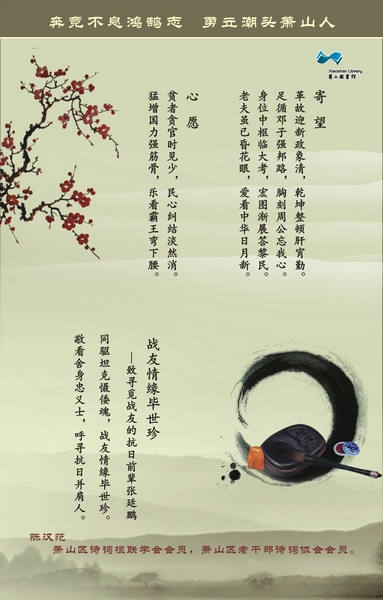 奔竞不息鸿鹄志　勇立潮头萧山人
Xiaoshan Library
萧山图书馆
寄望
革故迎新政象清，乾坤整顿肝宵勤。
足循邓子强邦路，胸刻周公忘我心。
身位中枢临大考，宏图渐展答黎民。
老夫虽已昏花眼，爱看中华日月新。
心愿
贫者贪官时见少，民心纠结淡然消。
猛增国力强筋骨，乐看霸王弯下腰。
战友情缘毕世珍
——致寻觅战友的抗日前辈张廷鹏
同驱坦克慑倭魂，战友情缘毕世珍。
敬看舍身忠义士，呼寻抗日并肩人。
陈汉范
萧山区诗词楹联学会会员，萧山区老干部诗词协会会员。